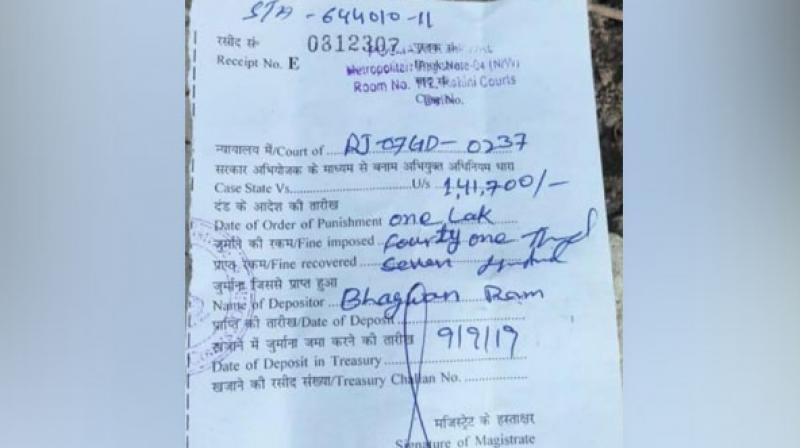 STA - 644010-11
रसीद सं 0312307 पुस्तक सं
Receipt No. E
Metropolitan Magistrate-04 (N/W)
Room No. 112, Rohini Courts
न्यायालय में/Court of RJ-07GD-0237
सरकार अभियोजक के माध्यम से बनाम अभियुक्त अधिनियम धारा
Case State Vs. U/s 1,41,700/-
दंड के आदेश की तारीख
Date of Order of Punishment one Lak
जुर्माने की रकम/Fine imposed fourty one
प्राप्त रकम/Fine recovered seven
जुर्माना जिससे प्राप्त हुआ
Name of Depositor Bhagwan Ram
प्राप्ति की तारीख/Date of Deposit
खजाने में जुर्माना जमा करने की तारीख 9/9/19
Date of Deposit in Treasury
खजाने की रसीद संख्या/Treasury Challan No.
मजिस्ट्रेट के हस्ताक्षर
Signature of Magistrate